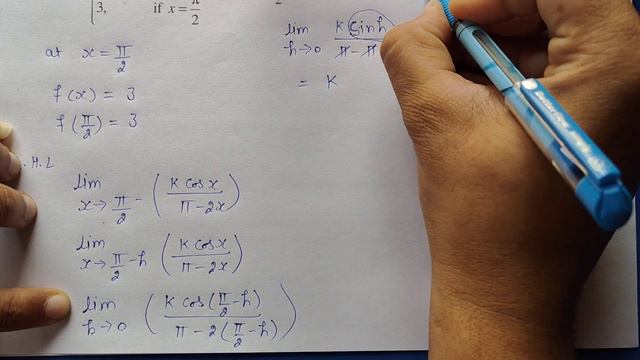 3, if x = π/2
2
at x = π/2
f(x) = 3
f(π/2) = 3
. H. L
lim x→π/2⁻ (K cos x / π - 2x)
lim x→π/2-h (K cos x / π - 2x)
lim h→0 (K cos(π/2-h) / π - 2(π/2-h))
lim h→0 K sinh / π - π
= K